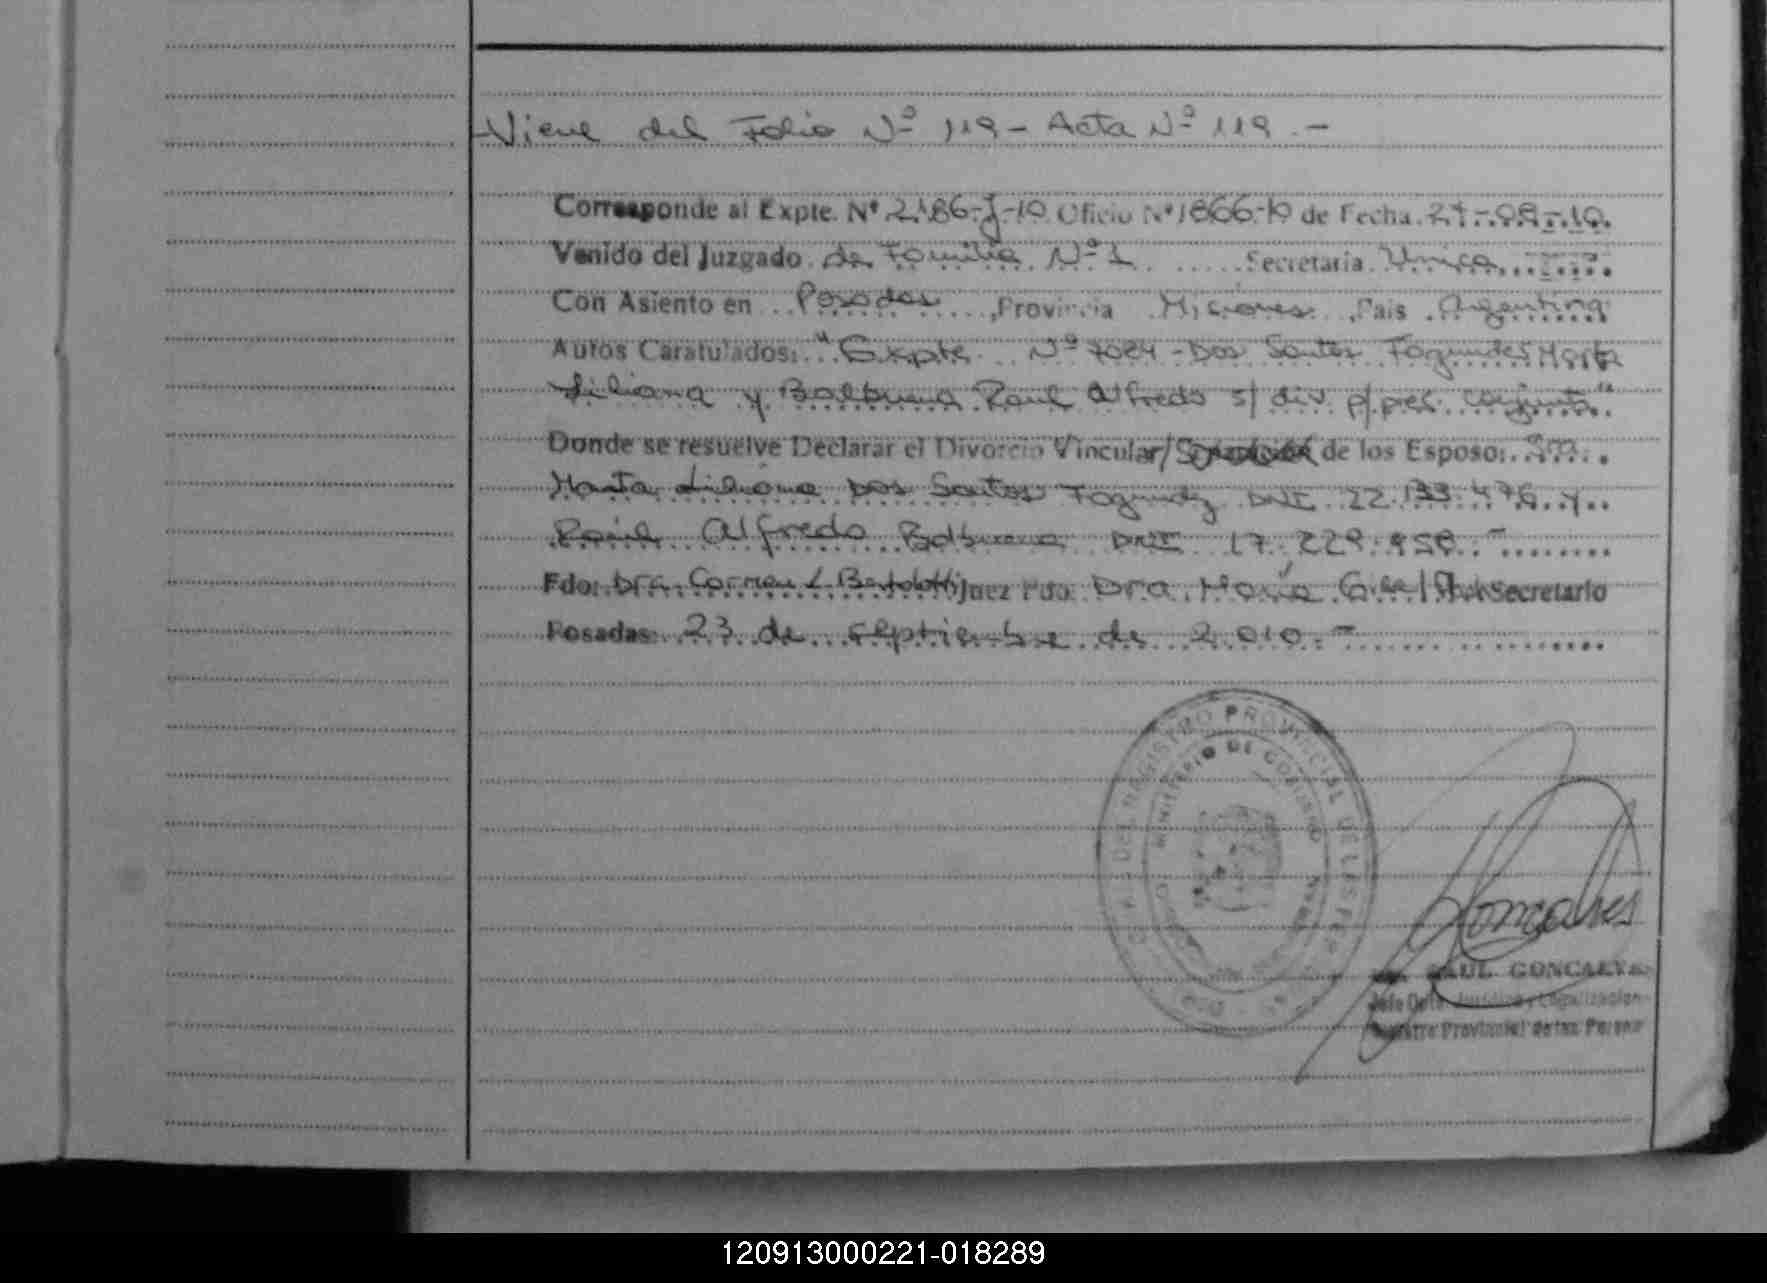 Viene del Folio Nº 119 - Acta Nº 119 . -
Corresponde al Expte. Nº 2186-J-10 Oficio Nº 1866-10 de Fecha
Venido del Juzgado de Familia Nº 1 Secretaria Unica
Con Asiento en Posadas, Provincia Misiones, Pais Argentina
Autos Caratulados: "Expte Nº 7024 - Dos Santos Fagundes Marta
Liliana y Balbuena Raul Alfredo s/ div. p/ pres. conjunta"
Donde se resuelve Declarar el Divorcio Vincular/ de los Esposo:
Marta Liliana Dos Santos Fagundez DNI 22.133.476 y
Raúl Alfredo Balbuena DNI 17.229.958.-
Fdo: Dra. Carmen L. Bertolotti Juez Fdo: Dra. María Secretario
Posadas: 23 de septiembre de 2.010.-
DEL REGISTRO PROVINCIAL DE LAS PER
MINISTERIO DE GOBIERNO
Goncalves
RAUL GONCALVES
Jefe Dpto. Jurídico y Legalizacion
Registro Provincial de las Person
120913000221-018289